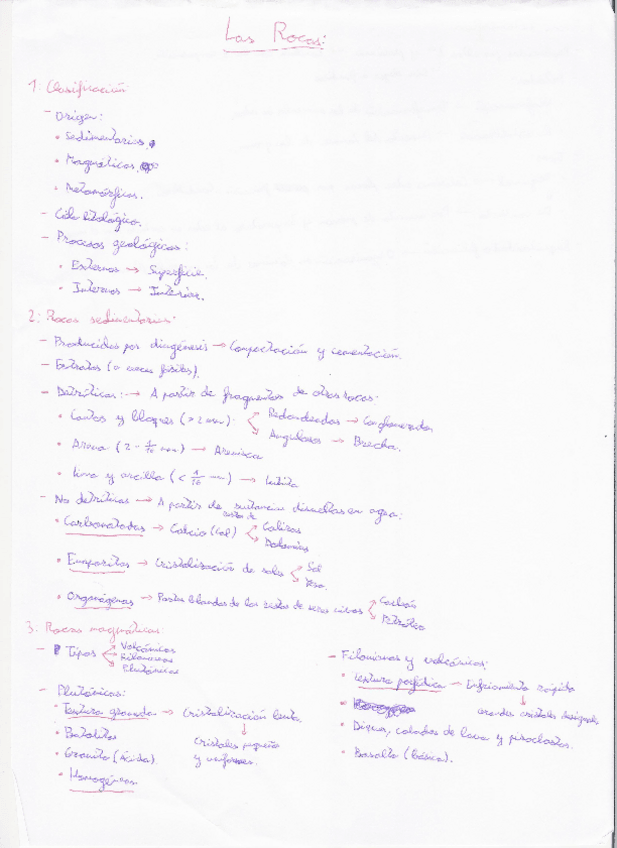 Las Rocas:
1. Clasificación:
- Origen:
• Sedimentarias.
• Magmáticas.
• Metamórficas.
- Ciclo litológico.
- Procesos geológicos:
• Externos → Superficie.
• Internos → Interior.
2. Rocas sedimentarias:
- Producidas por diagénesis → Compactación y cementación.
- Estratos (o rocas fósiles).
- Detríticas: → A partir de fragmentos de otras rocas:
• Cantos y bloques (> 2 mm):
Redondeados → Conglomerados
Angulosos → Brecha.
• Arena (2 - 1/16 mm) → Arenisca
• Limo y arcilla (< 1/16 mm) → Lutita
- No detríticas → A partir de sustancias disueltas en agua:
• Carbonatadas → Calcio (Cal)
Calizas
Dolomías
• Evaporitas → Cristalización de sales
Sal
Yeso.
• Organógenas → Partes blandas de los restos de seres vivos
Carbón
Petróleo
3. Rocas magmáticas:
- Tipos
Volcánicas
Filonianas
Plutónicas
- Plutónicas:
• Textura granuda → Cristalización lenta.
Cristales pequeños
y uniformes.
• Batolitos
• Granito (Ácida).
• Homogéneas
- Filonianas y volcánicas:
• Textura porfídica → Enfriamiento rápido
Grandes cristales desiguales
• Diques, coladas de lava y piroclastos.
• Basalto (básica).